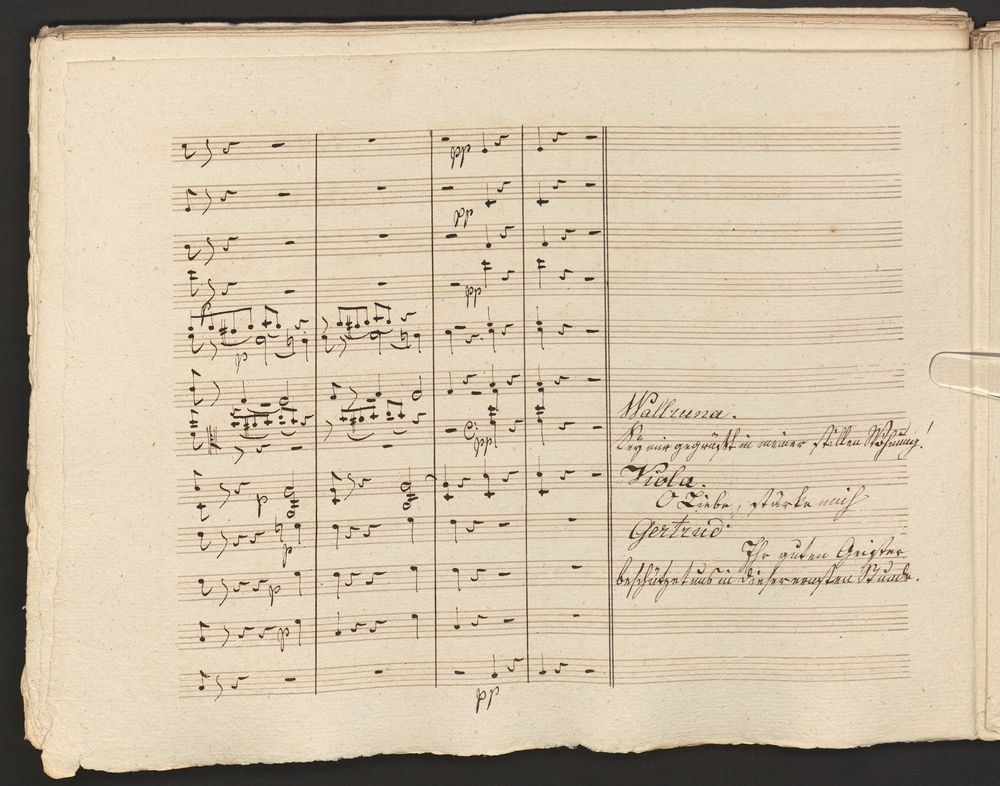 pp
pp
pp
pp
p
pp
p
p
p
p
pp
Wallruna.
Sey mir gegrüßt in meiner stillen Wohnung!
Viola.
O Liebe, stärke mich
Gertrud
Ihr guten Geister
beschützet uns in dieser ernsten Stunde.